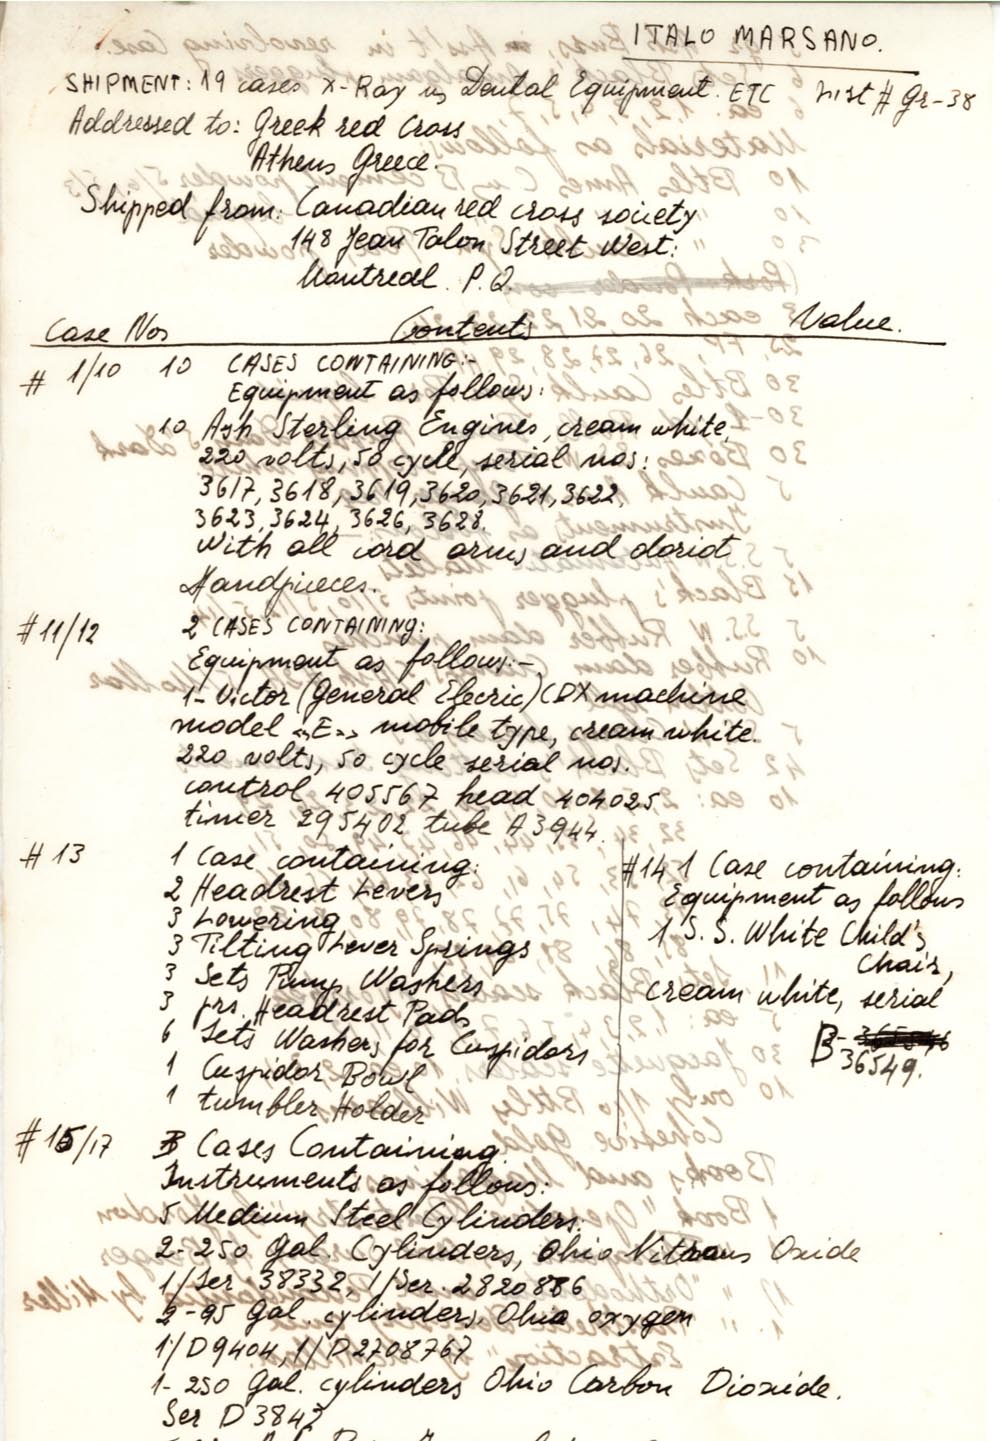 ITALO MARSANO.
SHIPMENT: 19 cases X-Ray Dental Equipment. ETC List # Gr-38
Addressed to: Greek red Cross
Athens Greece.
Shipped from: Canadian red cross society
148 Jean Talon Street West:
Montreal. P.Q.
Case Nos Contents Value.
# 1/10 10 CASES CONTAINING:-
Equipment as follows:
10 Ash Sterling Engines, cream white,
220 volts, 50 cycle, serial nos:
3617, 3618, 3619, 3620, 3621, 3622,
3623, 3624, 3626, 3628.
With all cord arms and doriot
Handpieces.
#11/12 2 CASES CONTAINING:
Equipment as follows:-
1- Victor (General Elecric) CDX machine
model «E» mobile type, cream white.
220 volts, 50 cycle serial nos.
control 405567 head 404025,
timer 295402 tube A3944.
# 13 1 Case containing:
2 Headrest Levers
3 Lowering
3 Tilting Lever Springs
3 Sets Pump Washers
3 prs. Headrest Pads
6 Sets Washers for Cuspidors
1 Cuspidor Bowl
1 tumbler Holder
#14 1 Case containing:
Equipment as follows
1 S.S. White Child's
Chair,
cream white, serial
B-
36549.
#15/17 3 Cases Containing
Instruments as follows:
5 Medium Steel Cylinders.
2-250 Gal. Cylinders, Ohio Nitrous Oxide
1/Ser 38332, 1/Ser. 2820886
2-95 Gal. cylinders, Ohio oxygen
1/D9404, 1/D2708767
1- 250 Gal. cylinders Ohio Carbon Dioxide.
Ser D3842